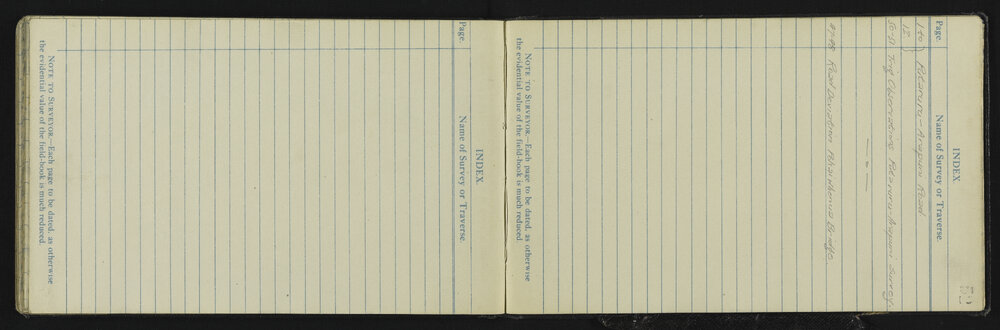 INDEX.
Page. Name of Survey or Traverse.
1 to 12 } Putaruru - Arapuni Road
50-51 Trig Observations Putaruru-Arapuni Survey
47-48 Road Deviation Bridge.
NOTE TO SURVEYOR.—Each page to be dated, as otherwise
the evidential value of the field-book is much reduced.
INDEX.
Page. Name of Survey or Traverse.
NOTE TO SURVEYOR.—Each page to be dated, as otherwise
the evidential value of the field-book is much reduced.